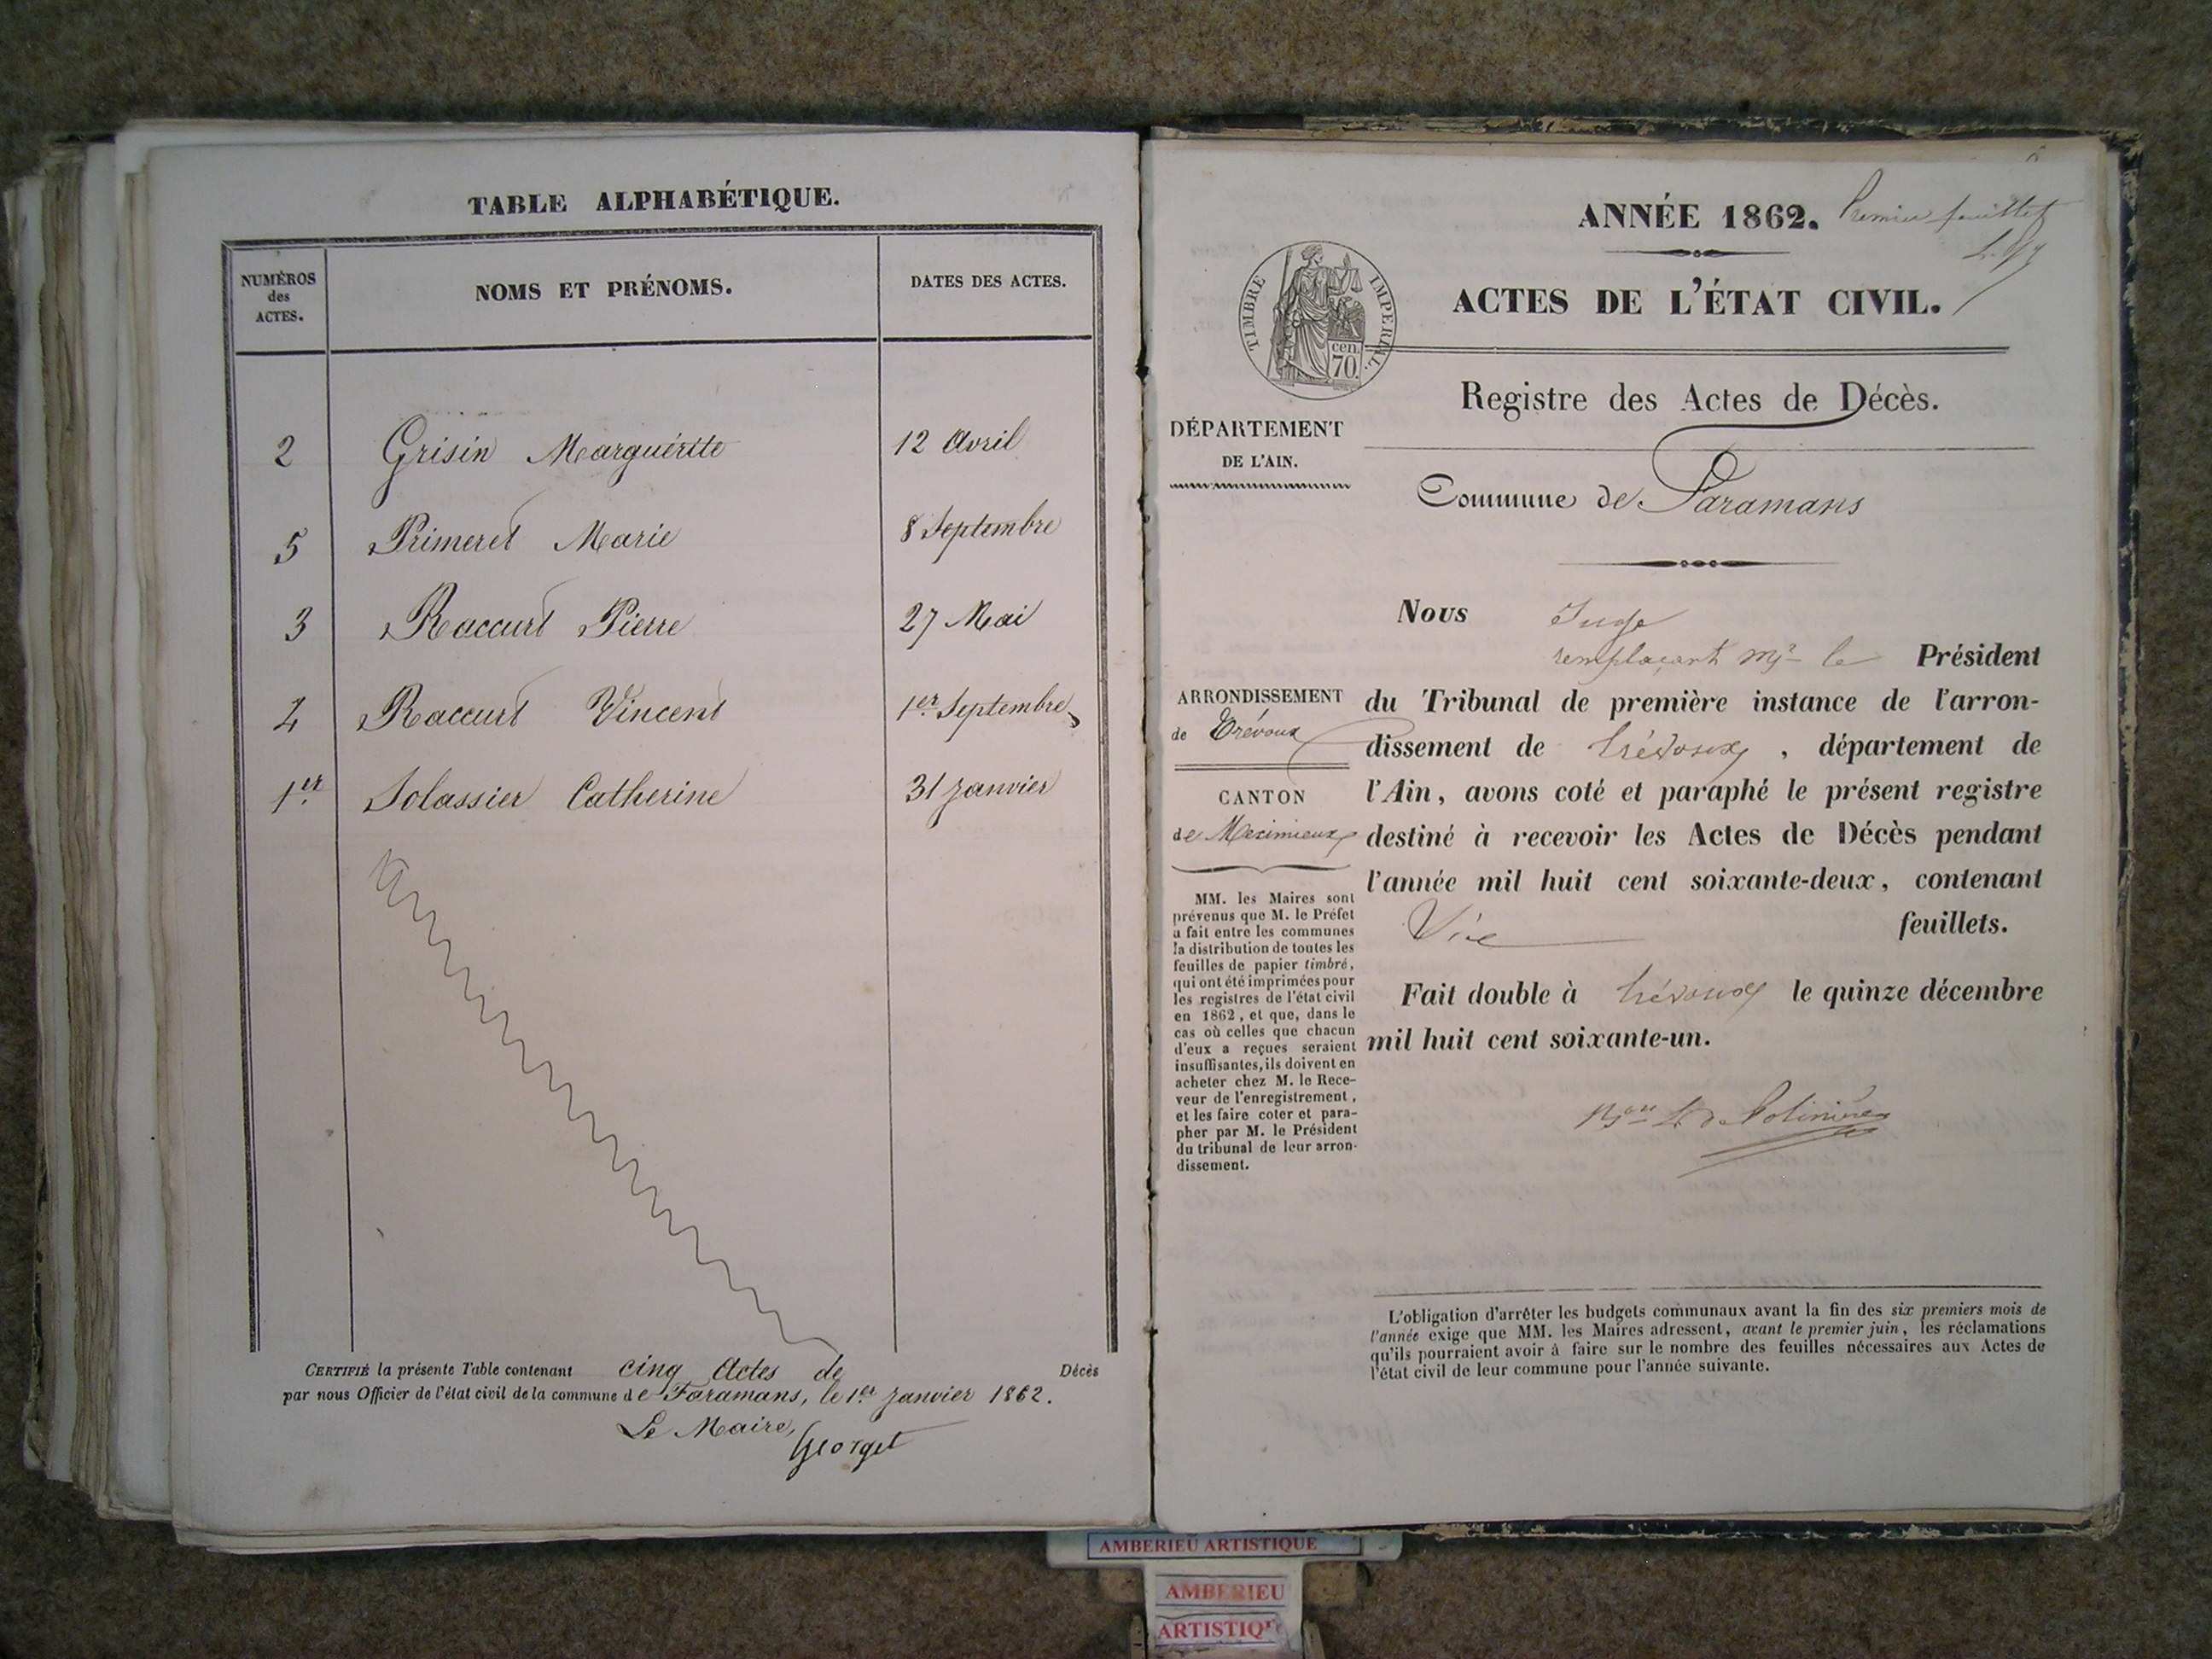 TABLE ALPHABÉTIQUE.
NUMÉROS
des
ACTES.
NOMS ET PRÉNOMS.
DATES DES ACTES.
2 Grisin Marguérite 12 Avril
5 Primeret Marie 8 Septembre
3 Raccurt Pierre 27 Mai
4 Raccurt Vincent 1er Septembre
1er Solassier Catherine 31 Janvier
CERTIFIÉ la présente Table contenant cinq Actes de Décès
par nous Officier de l'état civil de la commune de Faramans, le 1er Janvier 1862.
Le Maire,
Georget
ANNÉE 1862.
Premier feuillet
ACTES DE L'ÉTAT CIVIL.
TIMBRE IMPERIAL.
cen.
70.
Registre des Actes de Décès.
DÉPARTEMENT
DE L'AIN.
Commune de Faramans
ARRONDISSEMENT
de Trévoux
CANTON
de Meximieux
MM. les Maires sont
prévenus que M. le Préfet
a fait entre les communes
la distribution de toutes les
feuilles de papier timbré,
qui ont été imprimées pour
les registres de l'état civil
en 1862, et que, dans le
cas où celles que chacun
d'eux a reçues seraient
insuffisantes, ils doivent en
acheter chez M. le Rece-
veur de l'enregistrement,
et les faire coter et para-
pher par M. le Président
du tribunal de leur arron-
dissement.
Nous Juge
remplaçant Mr le Président
du Tribunal de première instance de l'arron-
dissement de Trévoux, département de
l'Ain, avons coté et paraphé le présent registre
destiné à recevoir les Actes de Décès pendant
l'année mil huit cent soixante-deux, contenant
feuillets.
Fait double à Trévoux le quinze décembre
mil huit cent soixante-un.
L'obligation d'arrêter les budgets communaux avant la fin des six premiers mois de
l'année exige que MM. les Maires adressent, avant le premier juin, les réclamations
qu'ils pourraient avoir à faire sur le nombre des feuilles nécessaires aux Actes de
l'état civil de leur commune pour l'année suivante.
AMBERIEU ARTISTIQUE
AMBERIEU
ARTISTIQUE